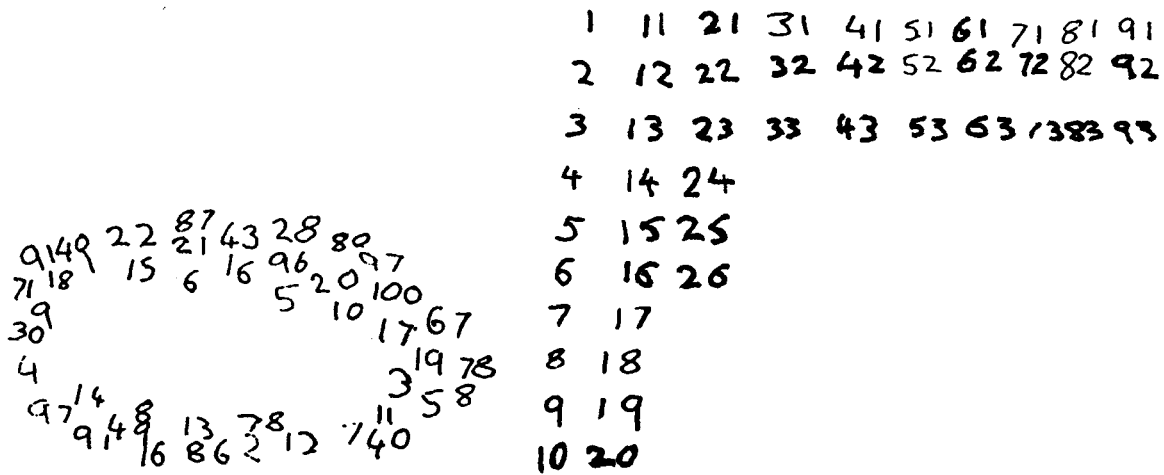 1 11 21 31 41 51 61 71 81 91
2 12 22 32 42 52 62 72 82 92
3 13 23 33 43 53 63 73 83 93
4 14 24
5 15 25
6 16 26
7 17
8 18
9 19
10 20
87
9149 22 21 43 28 89 97
71 18 15 6 16 96 5 20 10 100
9 17 67
30 19 78
4 3 5 8
97 14 11
91 48 96 13 86 78 2 12 40